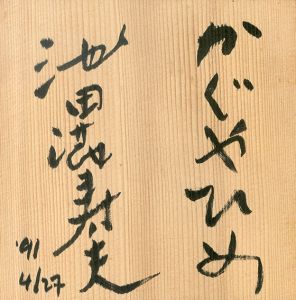 かぐやひめ
池田満寿夫
'91
4/27